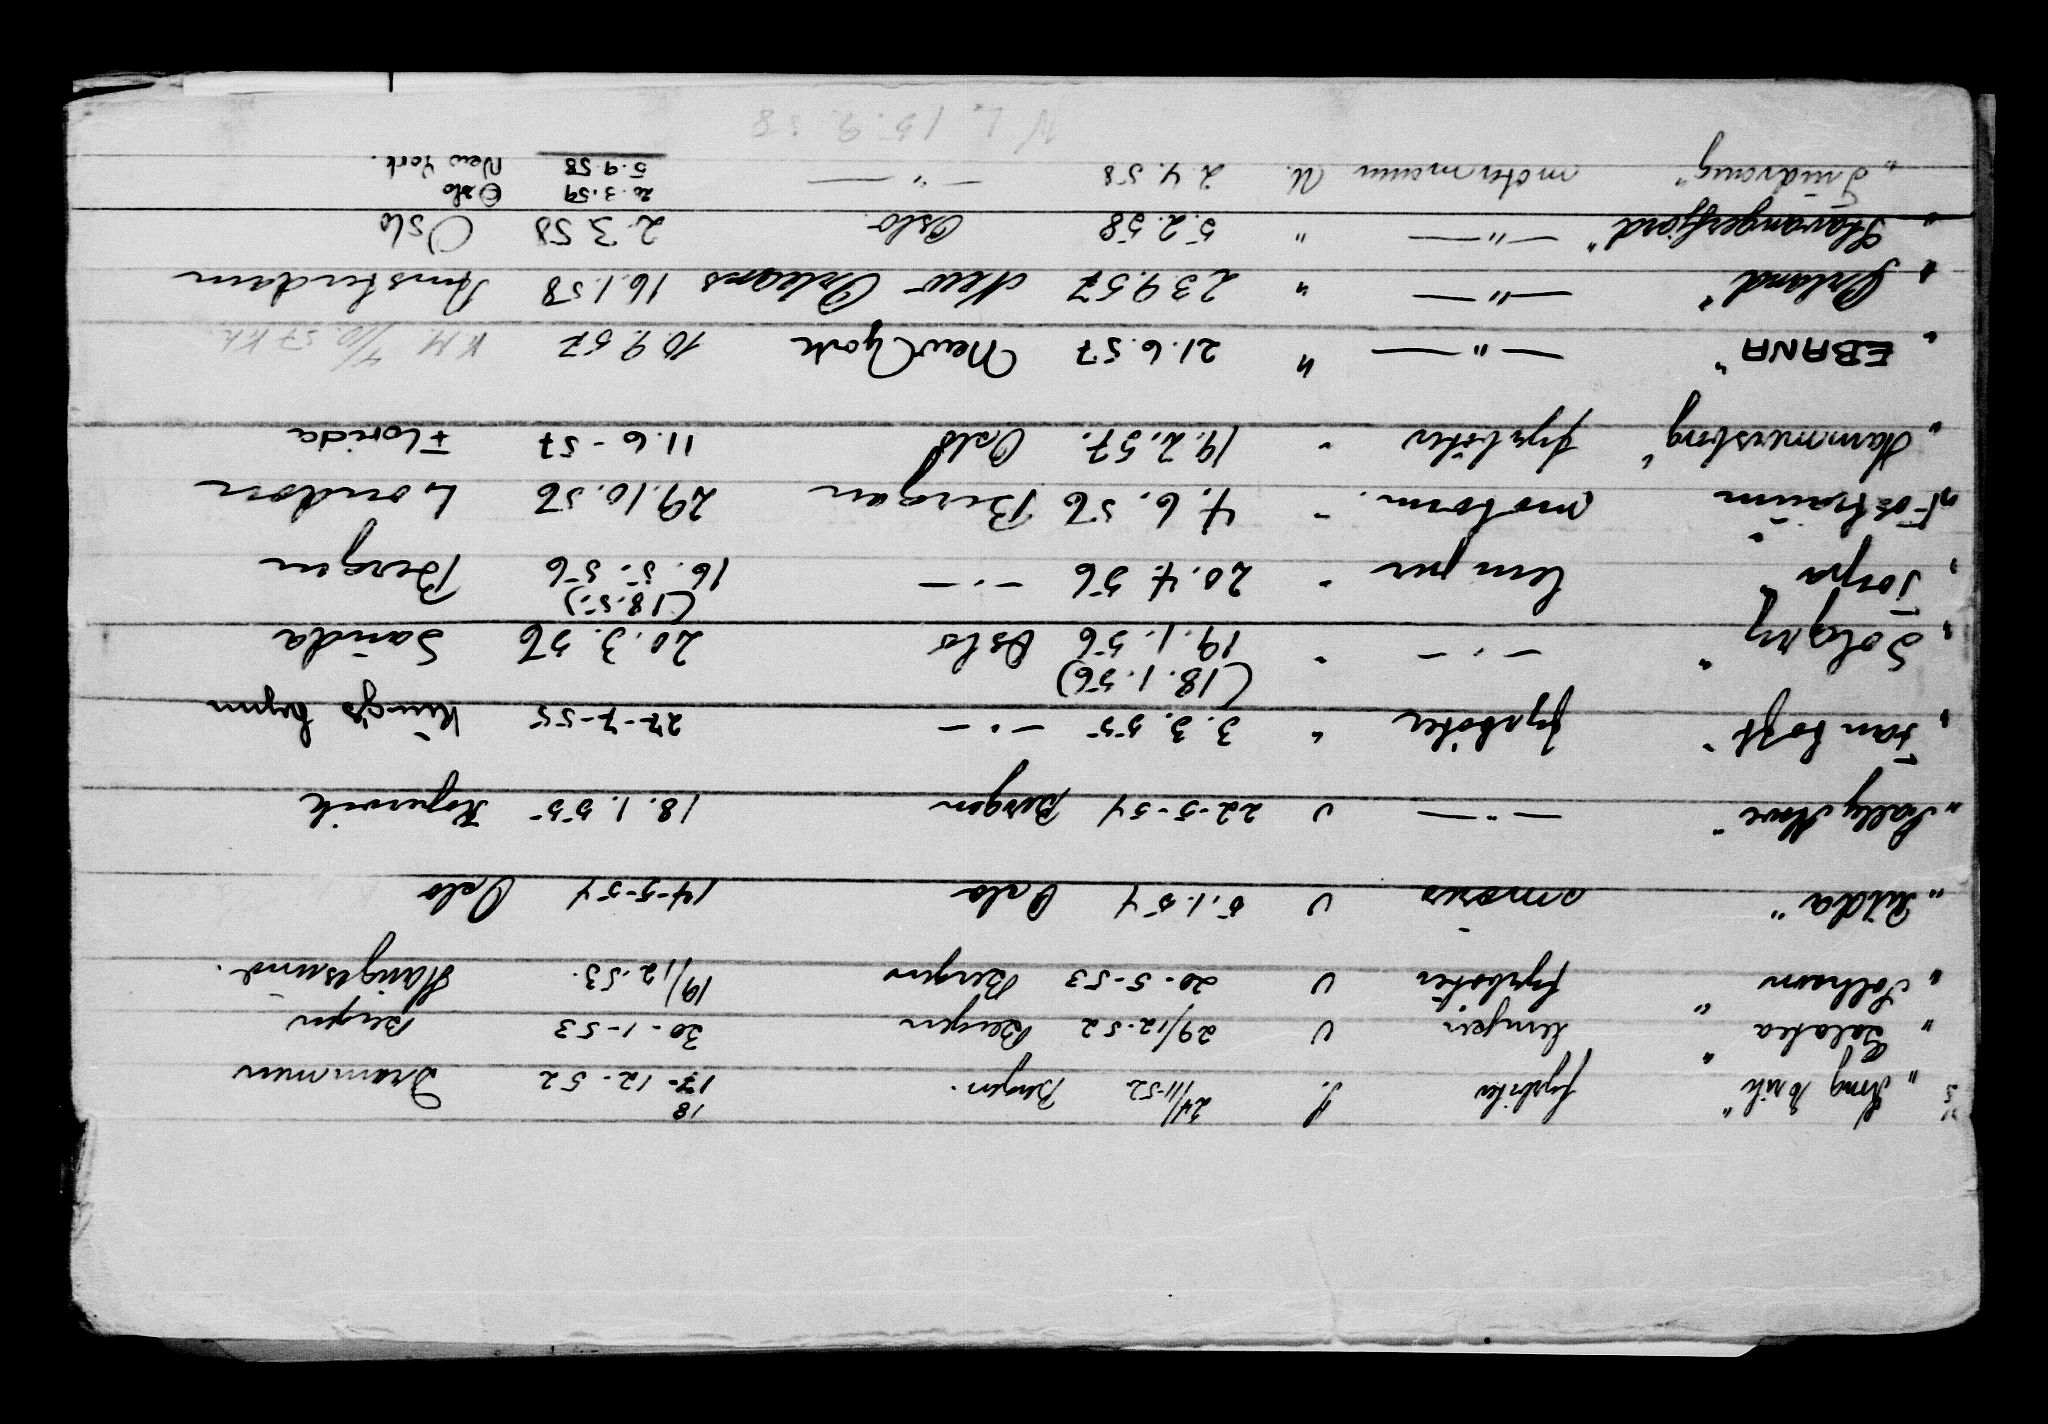 D/S "Kong Eirik" fyrböter 24/11-52 Bergen. 18 17-12-52 Drammen
" Galatea " lemper U 29/12-52 Bergen 30-1-53 Bergen
" Solhavn " fyrböter U 20-5-53 Bergen 19/12.53. Haugesund.
" Rilda " smører U 5.1.54 Oslo 14-5-54 Oslo
" Sally Hove " — " — U 22-5-54 Bergen 18.1.55 Kopervik
" Fantoft " fyrböter " 3.3.55 — " — 27-7-55 King's Lynn
(18.1.56)
" Solgry " — " — " 19.1.56 Oslo 20.3.56 Sauda
(18.5.)
" Torpa " lemper " 20.4.56 — " — 16.5.56 Bergen
" Fostraum " motorm. " 4.6.56 Bergen 29.10.56 London
" Hammersborg " fyrböter " 19.2.57. Oslo 11.6-57 Florida
" EBANA " — " — " 21.6.57 New York 10.9.57 KM. 4/10.57 KK
" Ørland " — " — " 23.9.57 New Orleans 16.1.58 Amsterdam
" Stavangerfjord " — " — " 5.2.58 Oslo 2.3.58 Oslo
20.3.59 Oslo
" Tindvang " motormann U. 2.4.58 — " — 5.9.58 New York.
N L. 15.9.58